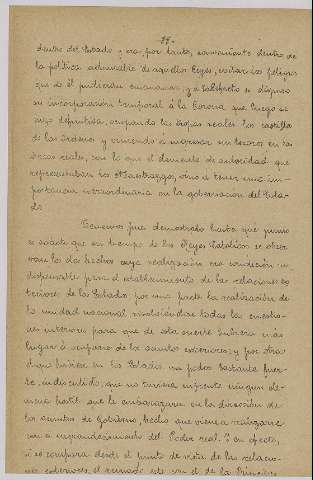 -27-
dentro del Estado y era, por tanto, conveniente dentro de
la política admirable de aquellos Reyes, evitar los peligros
que de él pudieran emanarse, y a tal efecto se dispuso
su incorporación temporal á la Corona que luego se
hizo definitiva, ocupando las tropas reales los castillos
de las Órdenes y viniendo á ingresar sus tesoros en las
arcas reales, con lo que el elemento de autoridad que
representaban los Maestrazgos, vino á tener una im-
portancia extraordinaria en la gobernación del Esta-
do.
Tenemos pues demostrado hasta qué punto
es sólido que en tiempo de los Reyes Católicos se obser-
van los dos hechos cuya realización era condición in-
dispensable para el establecimiento de las relaciones ex-
teriores de los Estados por una parte la realización de
la unidad nacional resolviéndose todas las cuestio-
nes interiores para que de esta suerte hubiera más
lugar á ocuparse de los asuntos exteriores, y por otra
que hubiese en los Estados un poder bastante fuer-
te, indiscutido, que no tuviera enfrente ningún ele-
mento hostil que le embarazara en la dirección de
los asuntos de Gobierno, hecho que viene á realizarse
con el engrandecimiento del Poder real. Y en efecto,
si se compara desde el punto de vista de las relacio-
nes exteriores, el reinado este con el de los